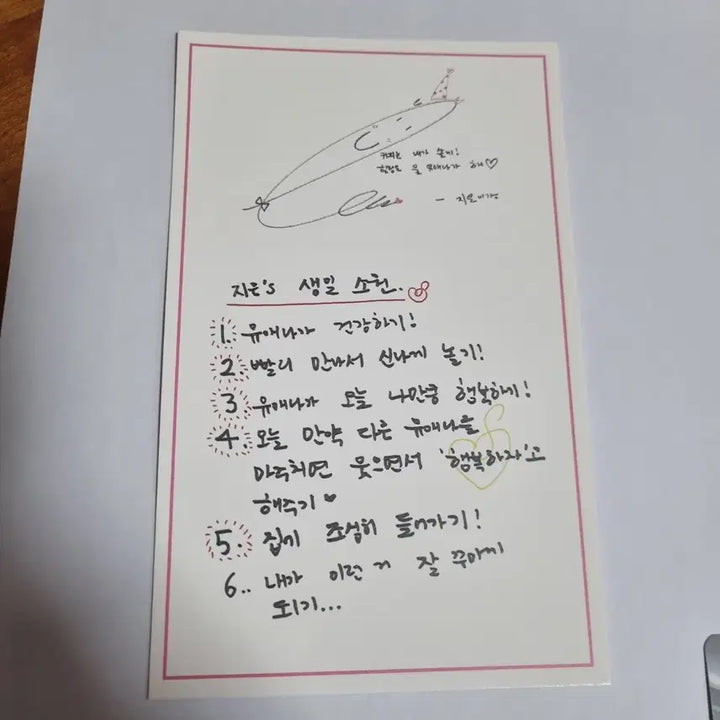 커피는 내가 쏠게!
한턱은 울 유애나가 해♡
- 지은이가-
지은's 생일 소원.
1. 유애나가 건강하기!
2. 빨리 만나서 신나게 놀기!
3. 유애나가 오늘 나만큼 행복하기!
4. 오늘 만약 다른 유애나를
마주치면 웃으면서 '행복하자'고
해주기♥
5. 집에 조심히 들어가기!
6.. 내가 이런 거 잘 꾸미게
되기...